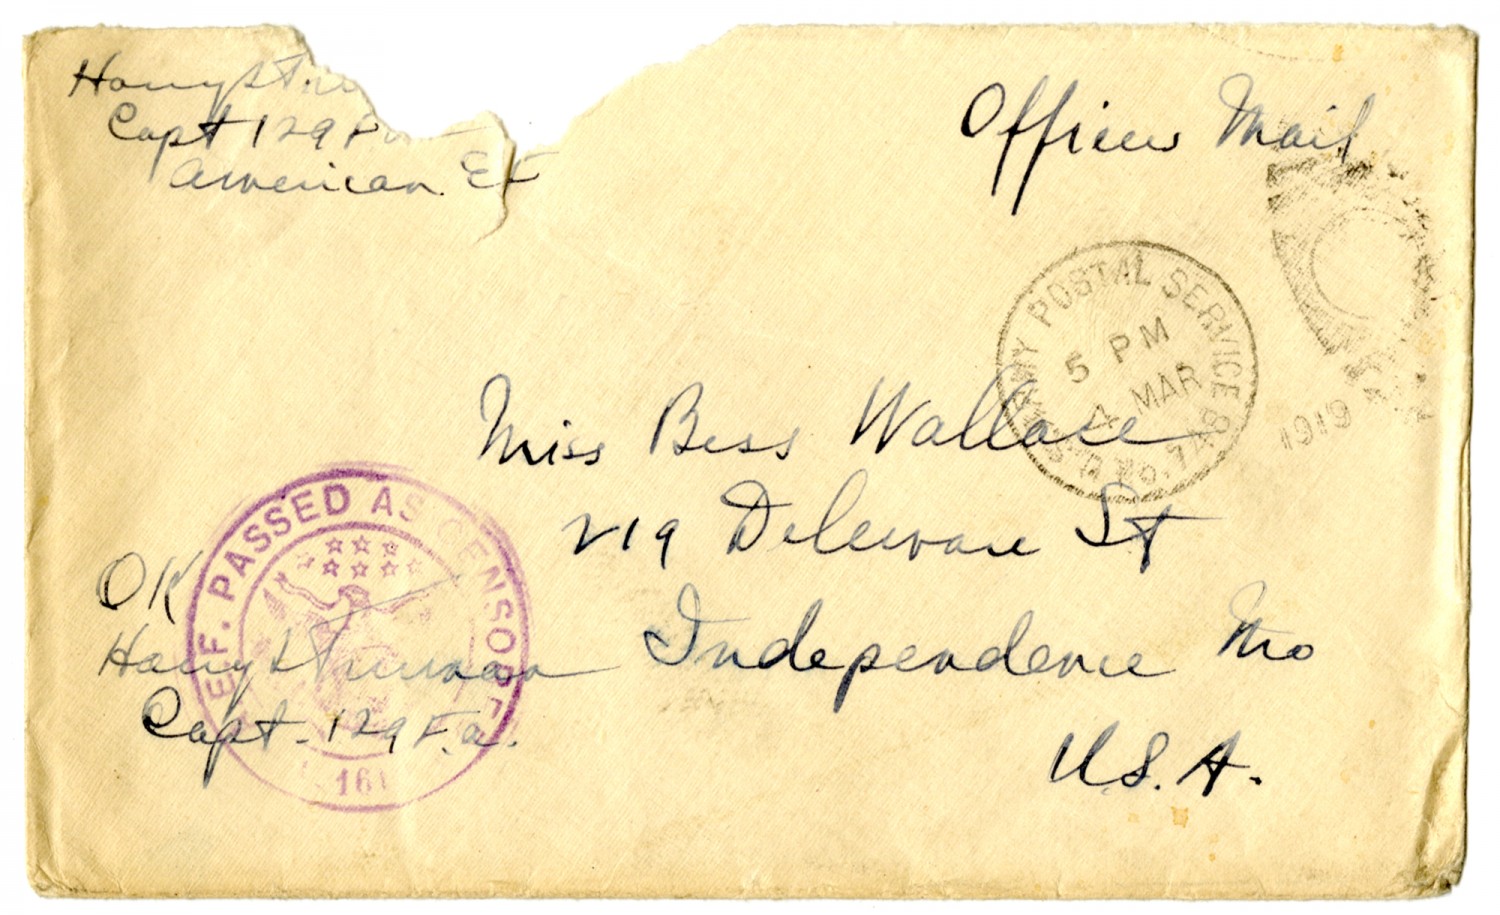 Harry S Tru
Capt 129 F
American E F
Officers Mail
ARMY POSTAL SERVICE
5 PM
4 MAR
1919
Miss Bess Wallace
219 Deleware St
Independence Mo
U.S.A.
A.E.F. PASSED AS CENSORED
OK
Harry S Truman
Capt. 129 F.A.
161